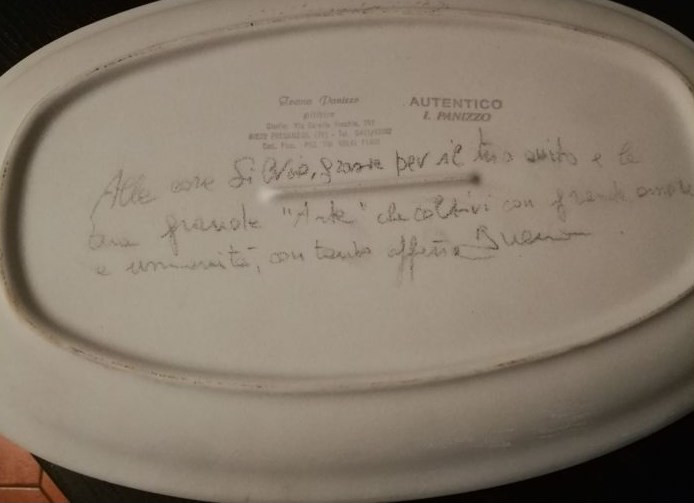 Ivana Panizzo
pittrice
AUTENTICO
I. PANIZZO
Alla cara Silvia, grazie per il tuo aiuto e la
tua grande "Arte" che coltivi con grande amore
e umanità, con tanto affetto Ivana